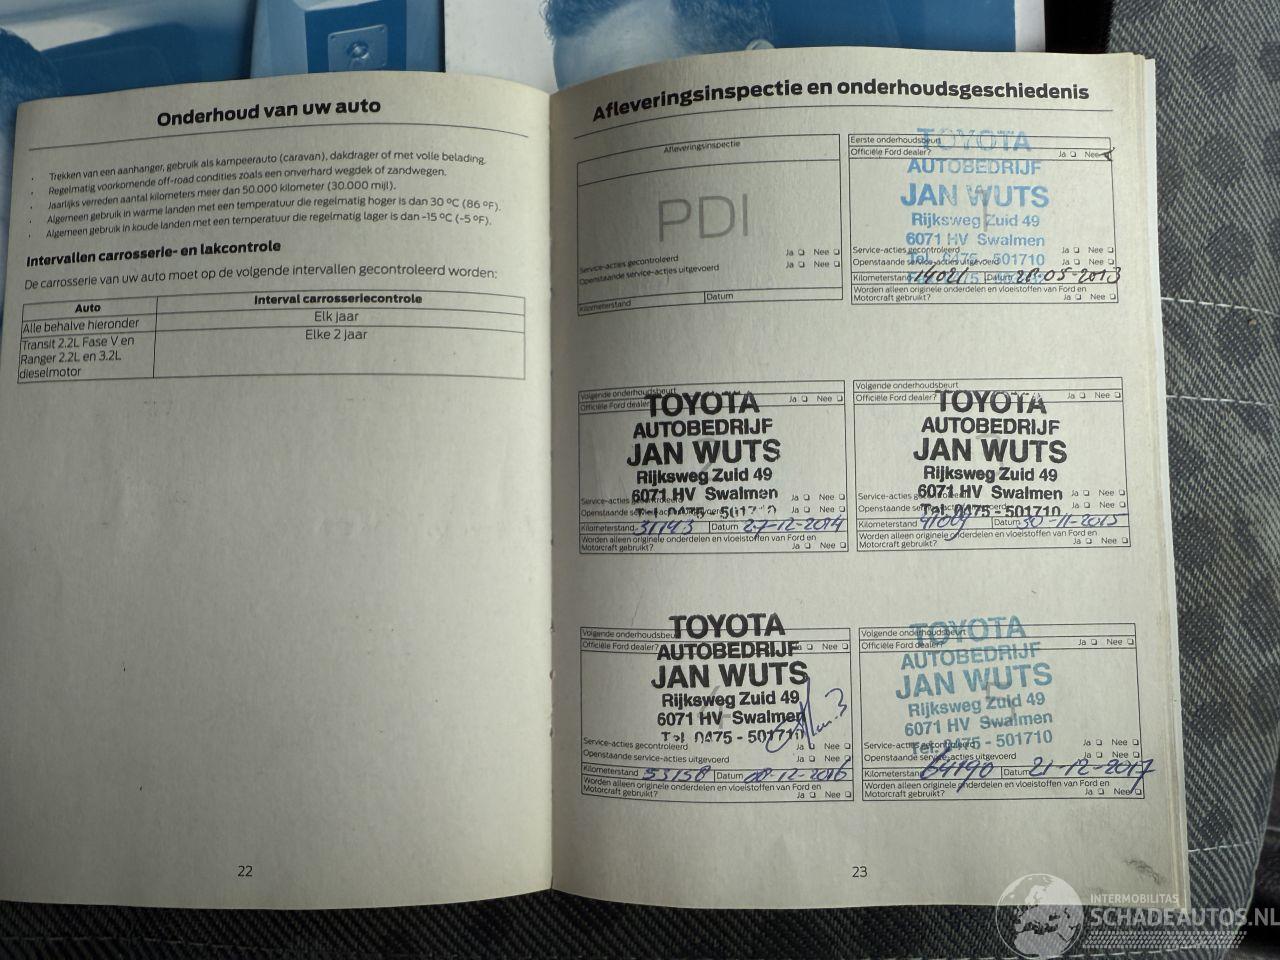 Onderhoud van uw auto
· Trekken van een aanhanger, gebruik als kampeerauto (caravan), dakdrager of met volle belading.
· Regelmatig voorkomende off-road condities zoals een onverhard wegdek of zandwegen.
· Jaarlijks verreden aantal kilometers meer dan 50.000 kilometer (30.000 mijl).
· Algemeen gebruik in warme landen met een temperatuur die regelmatig hoger is dan 30 ºC (86 ºF).
· Algemeen gebruik in koude landen met een temperatuur die regelmatig lager is dan -15 ºC (-5 ºF).
Intervallen carrosserie- en lakcontrole
De carrosserie van uw auto moet op de volgende intervallen gecontroleerd worden:
Auto Interval carrosseriecontrole
Alle behalve hieronder Elk jaar
Transit 2.2L Fase V en Elke 2 jaar
Ranger 2.2L en 3.2L
dieselmotor
22
Afleveringsinspectie en onderhoudsgeschiedenis
Afleveringsinspectie
PDI
Service-acties gecontroleerd Ja Nee
Openstaande service-acties uitgevoerd Ja Nee
Kilometerstand Datum
Eerste onderhoudsbeurt
Officiële Ford dealer? Ja Nee
TOYOTA
AUTOBEDRIJF
JAN WUTS
1
Rijksweg Zuid 49
6071 HV Swalmen
Tel. 0475 - 501710
Service-acties gecontroleerd Ja Nee
Openstaande service-acties uitgevoerd Ja Nee
Kilometerstand 14021 Datum 28-05-2013
Worden alleen originele onderdelen en vloeistoffen van Ford en
Motorcraft gebruikt? Ja Nee
Volgende onderhoudsbeurt
Officiële Ford dealer? Ja Nee
TOYOTA
AUTOBEDRIJF
JAN WUTS
2
Rijksweg Zuid 49
6071 HV Swalmen
Tel. 0475 - 501710
Service-acties gecontroleerd Ja Nee
Openstaande service-acties uitgevoerd Ja Nee
Kilometerstand 31143 Datum 27-12-2014
Worden alleen originele onderdelen en vloeistoffen van Ford en
Motorcraft gebruikt? Ja Nee
Volgende onderhoudsbeurt
Officiële Ford dealer? Ja Nee
TOYOTA
AUTOBEDRIJF
JAN WUTS
Rijksweg Zuid 49
6071 HV Swalmen
Tel. 0475 - 501710
Service-acties gecontroleerd Ja Nee
Openstaande service-acties uitgevoerd Ja Nee
Kilometerstand 41009 Datum 30-11-2015
Worden alleen originele onderdelen en vloeistoffen van Ford en
Motorcraft gebruikt? Ja Nee
Volgende onderhoudsbeurt
Officiële Ford dealer? Ja Nee
TOYOTA
AUTOBEDRIJF
JAN WUTS
4
Rijksweg Zuid 49
6071 HV Swalmen
Tel. 0475 - 501710
Service-acties gecontroleerd Ja Nee
Openstaande service-acties uitgevoerd Ja Nee
Kilometerstand 53158 Datum 08-12-2016
Worden alleen originele onderdelen en vloeistoffen van Ford en
Motorcraft gebruikt? Ja Nee
Volgende onderhoudsbeurt
Officiële Ford dealer? Ja Nee
TOYOTA
AUTOBEDRIJF
JAN WUTS
5
Rijksweg Zuid 49
6071 HV Swalmen
Tel. 0475 - 501710
Service-acties gecontroleerd Ja Nee
Openstaande service-acties uitgevoerd Ja Nee
Kilometerstand 64190 Datum 21-12-2017
Worden alleen originele onderdelen en vloeistoffen van Ford en
Motorcraft gebruikt? Ja Nee
23
INTERMOBILITAS
SCHADEAUTOS.NL